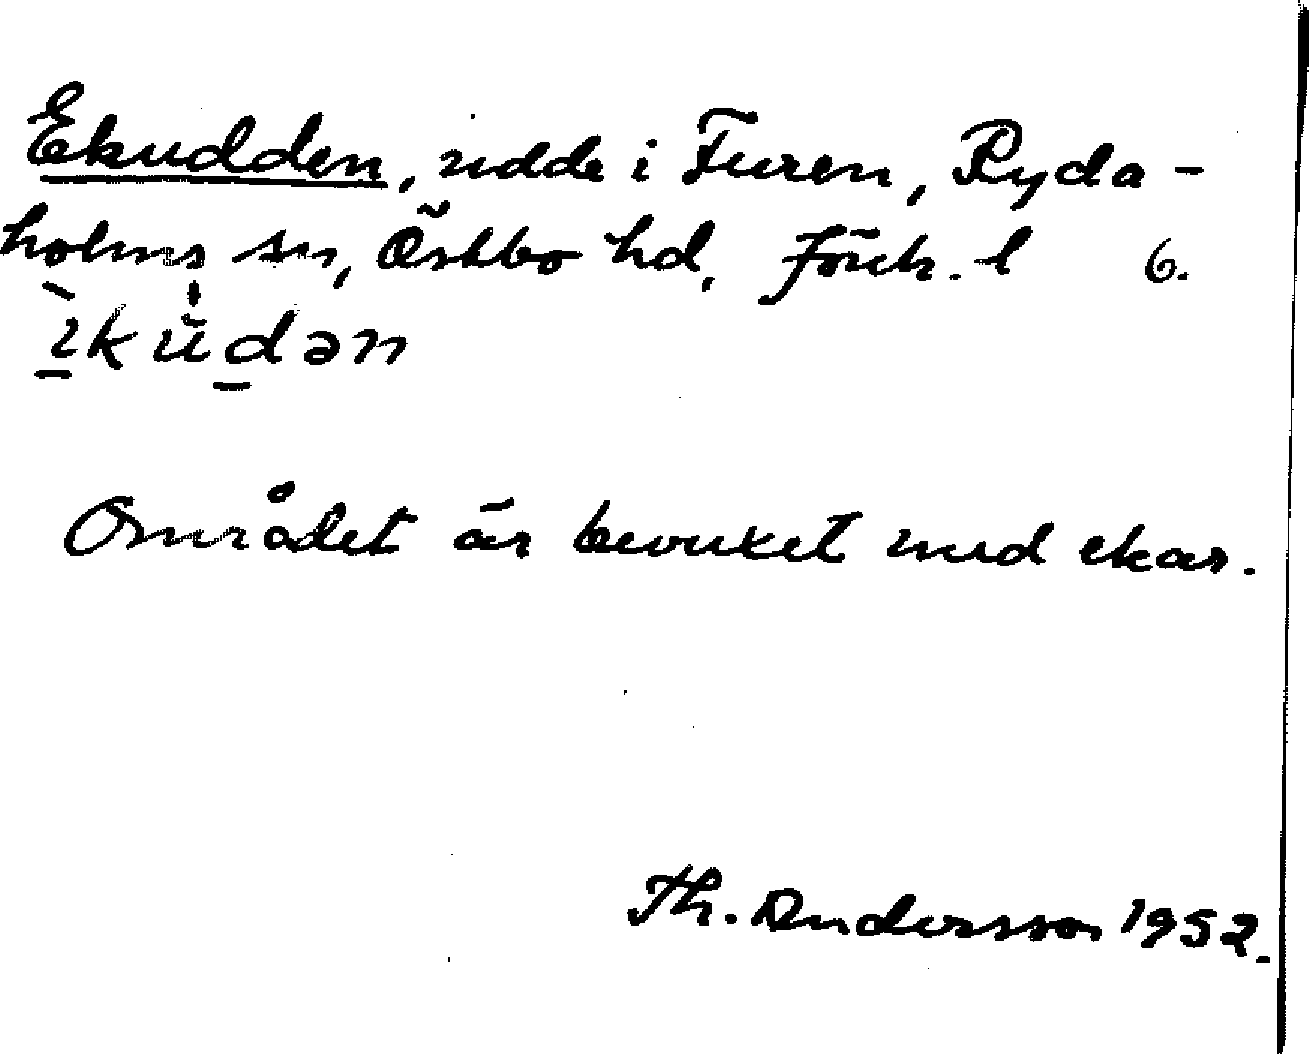 Ekudden, udde i Furen, Ryda-
holms sn, Östbo hd, Jönk. l 6.
ìkúdən
Området är bevuxet med ekar.
Th. Andersson 1952.